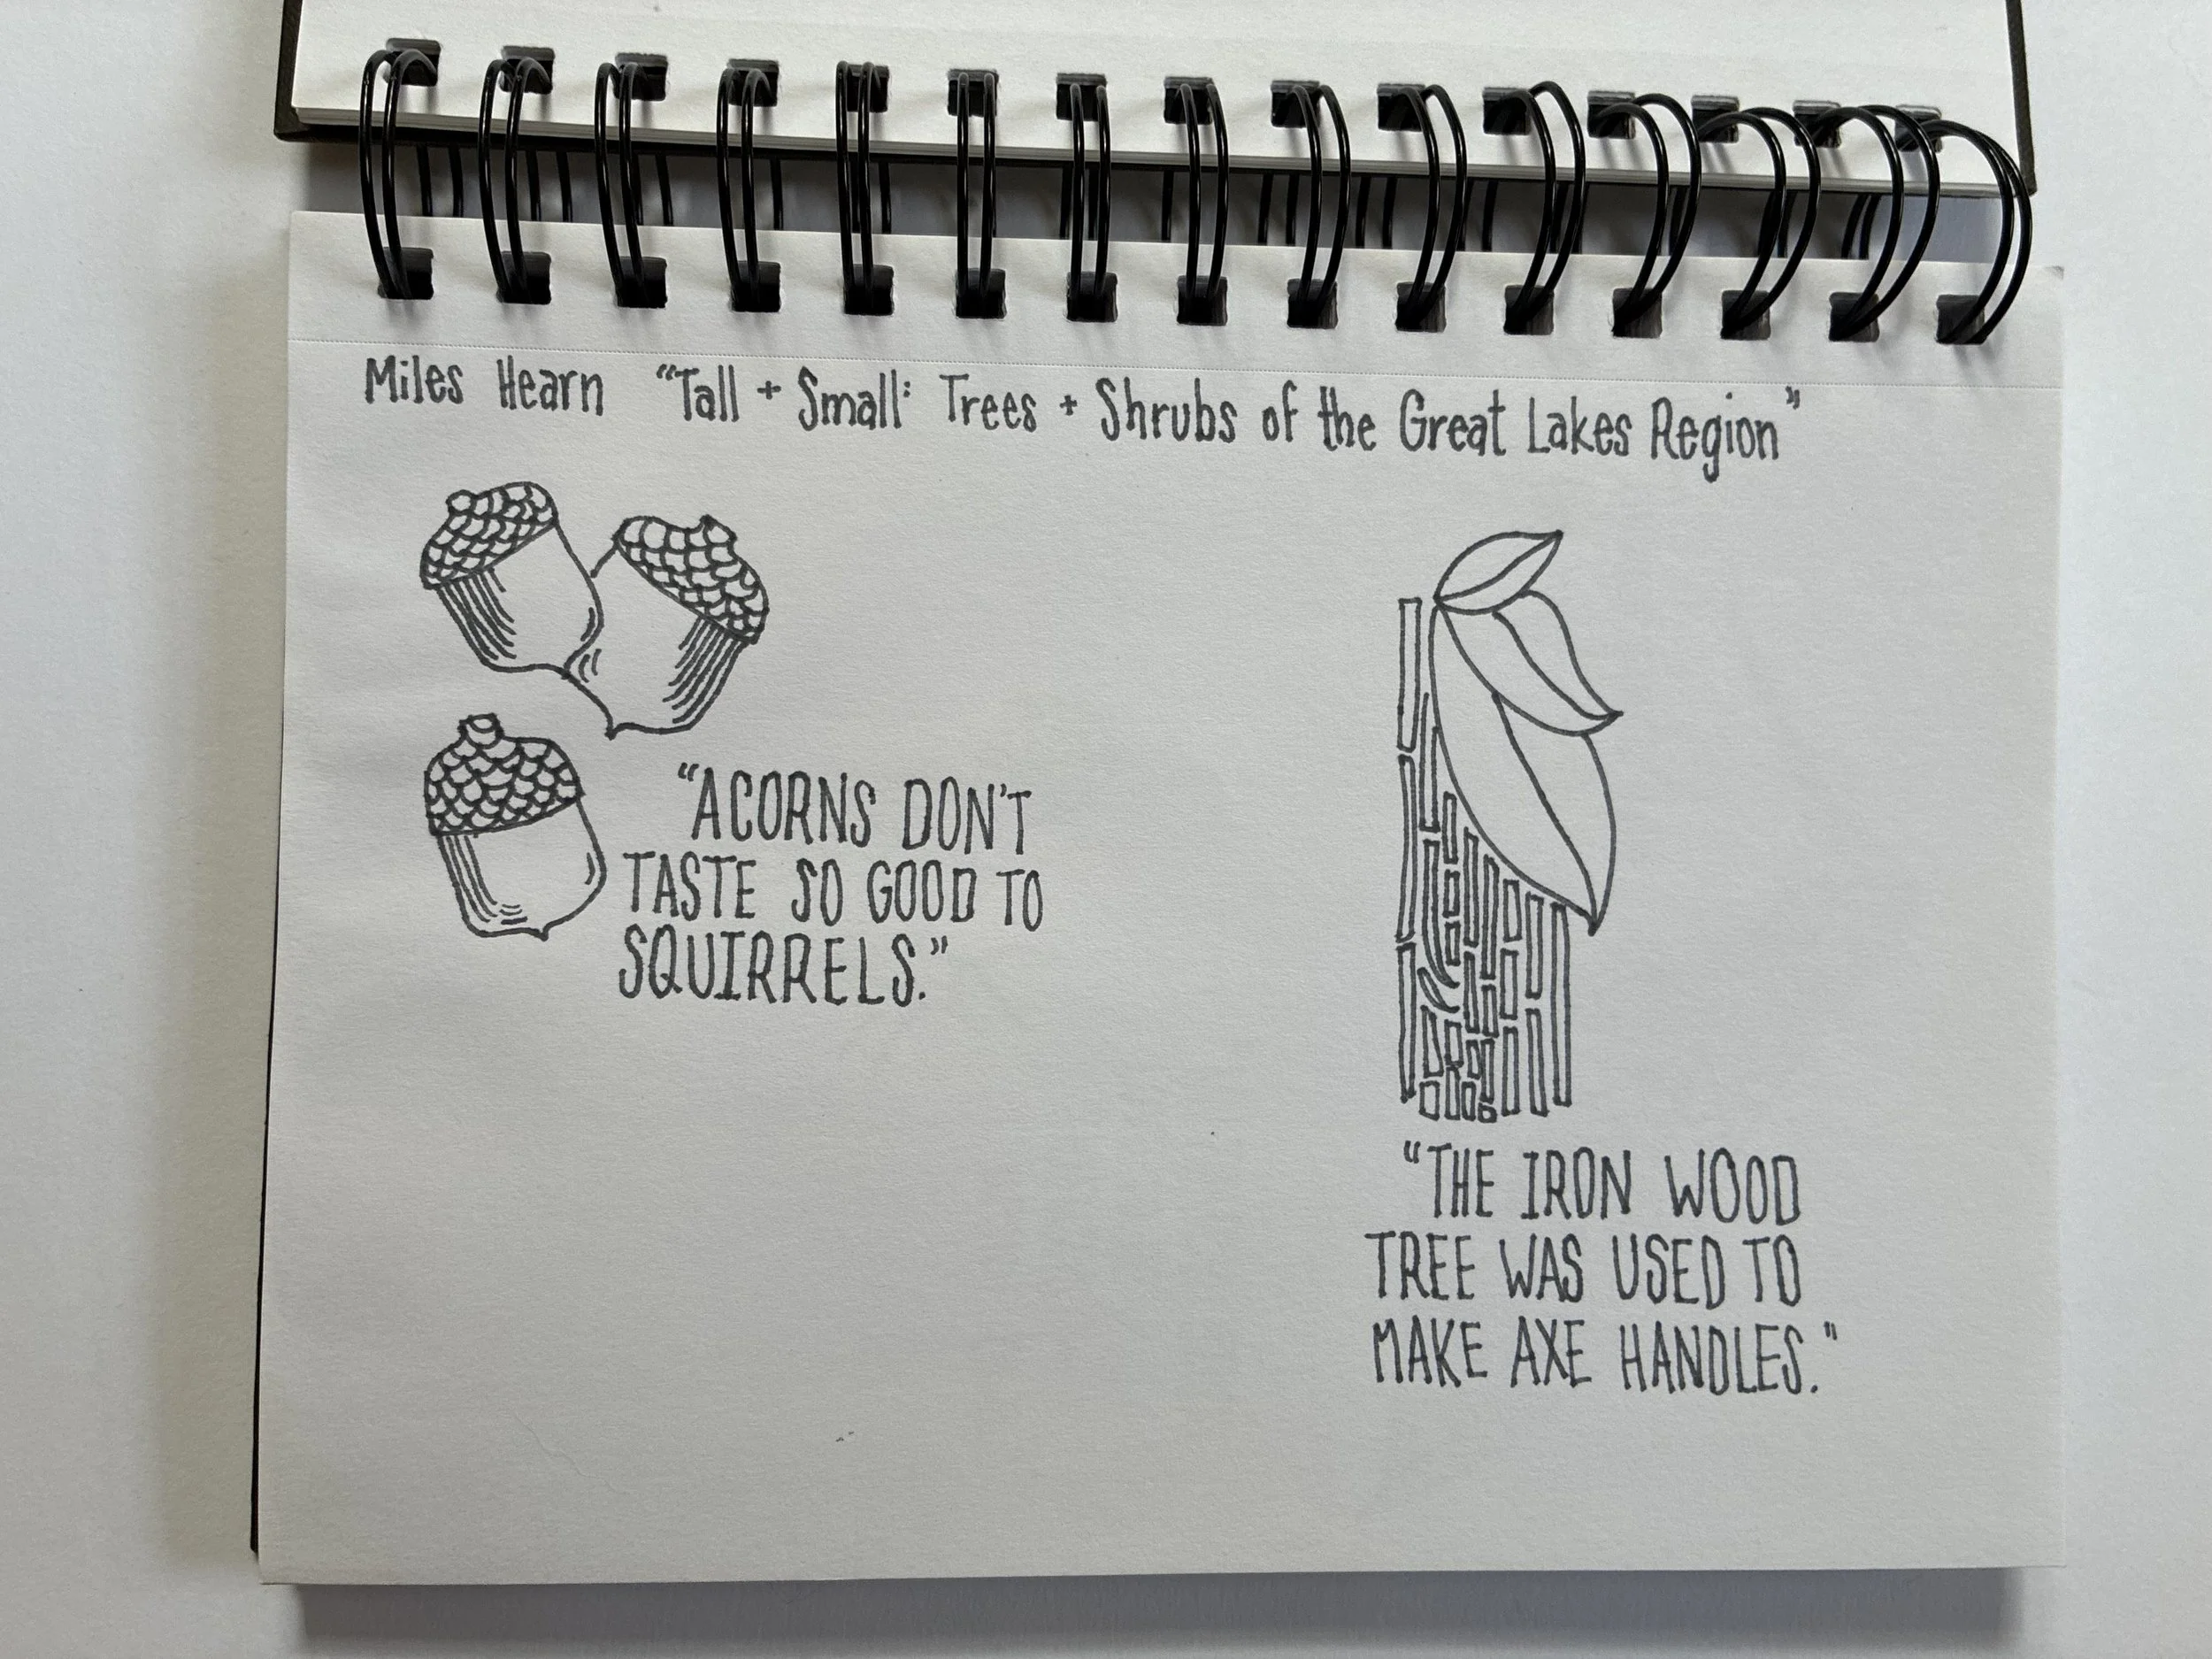 Miles Hearn "Tall + Small: Trees + Shrubs of the Great Lakes Region"
"ACORNS DON'T
TASTE SO GOOD TO
SQUIRRELS."
"THE IRON WOOD
TREE WAS USED TO
MAKE AXE HANDLES."